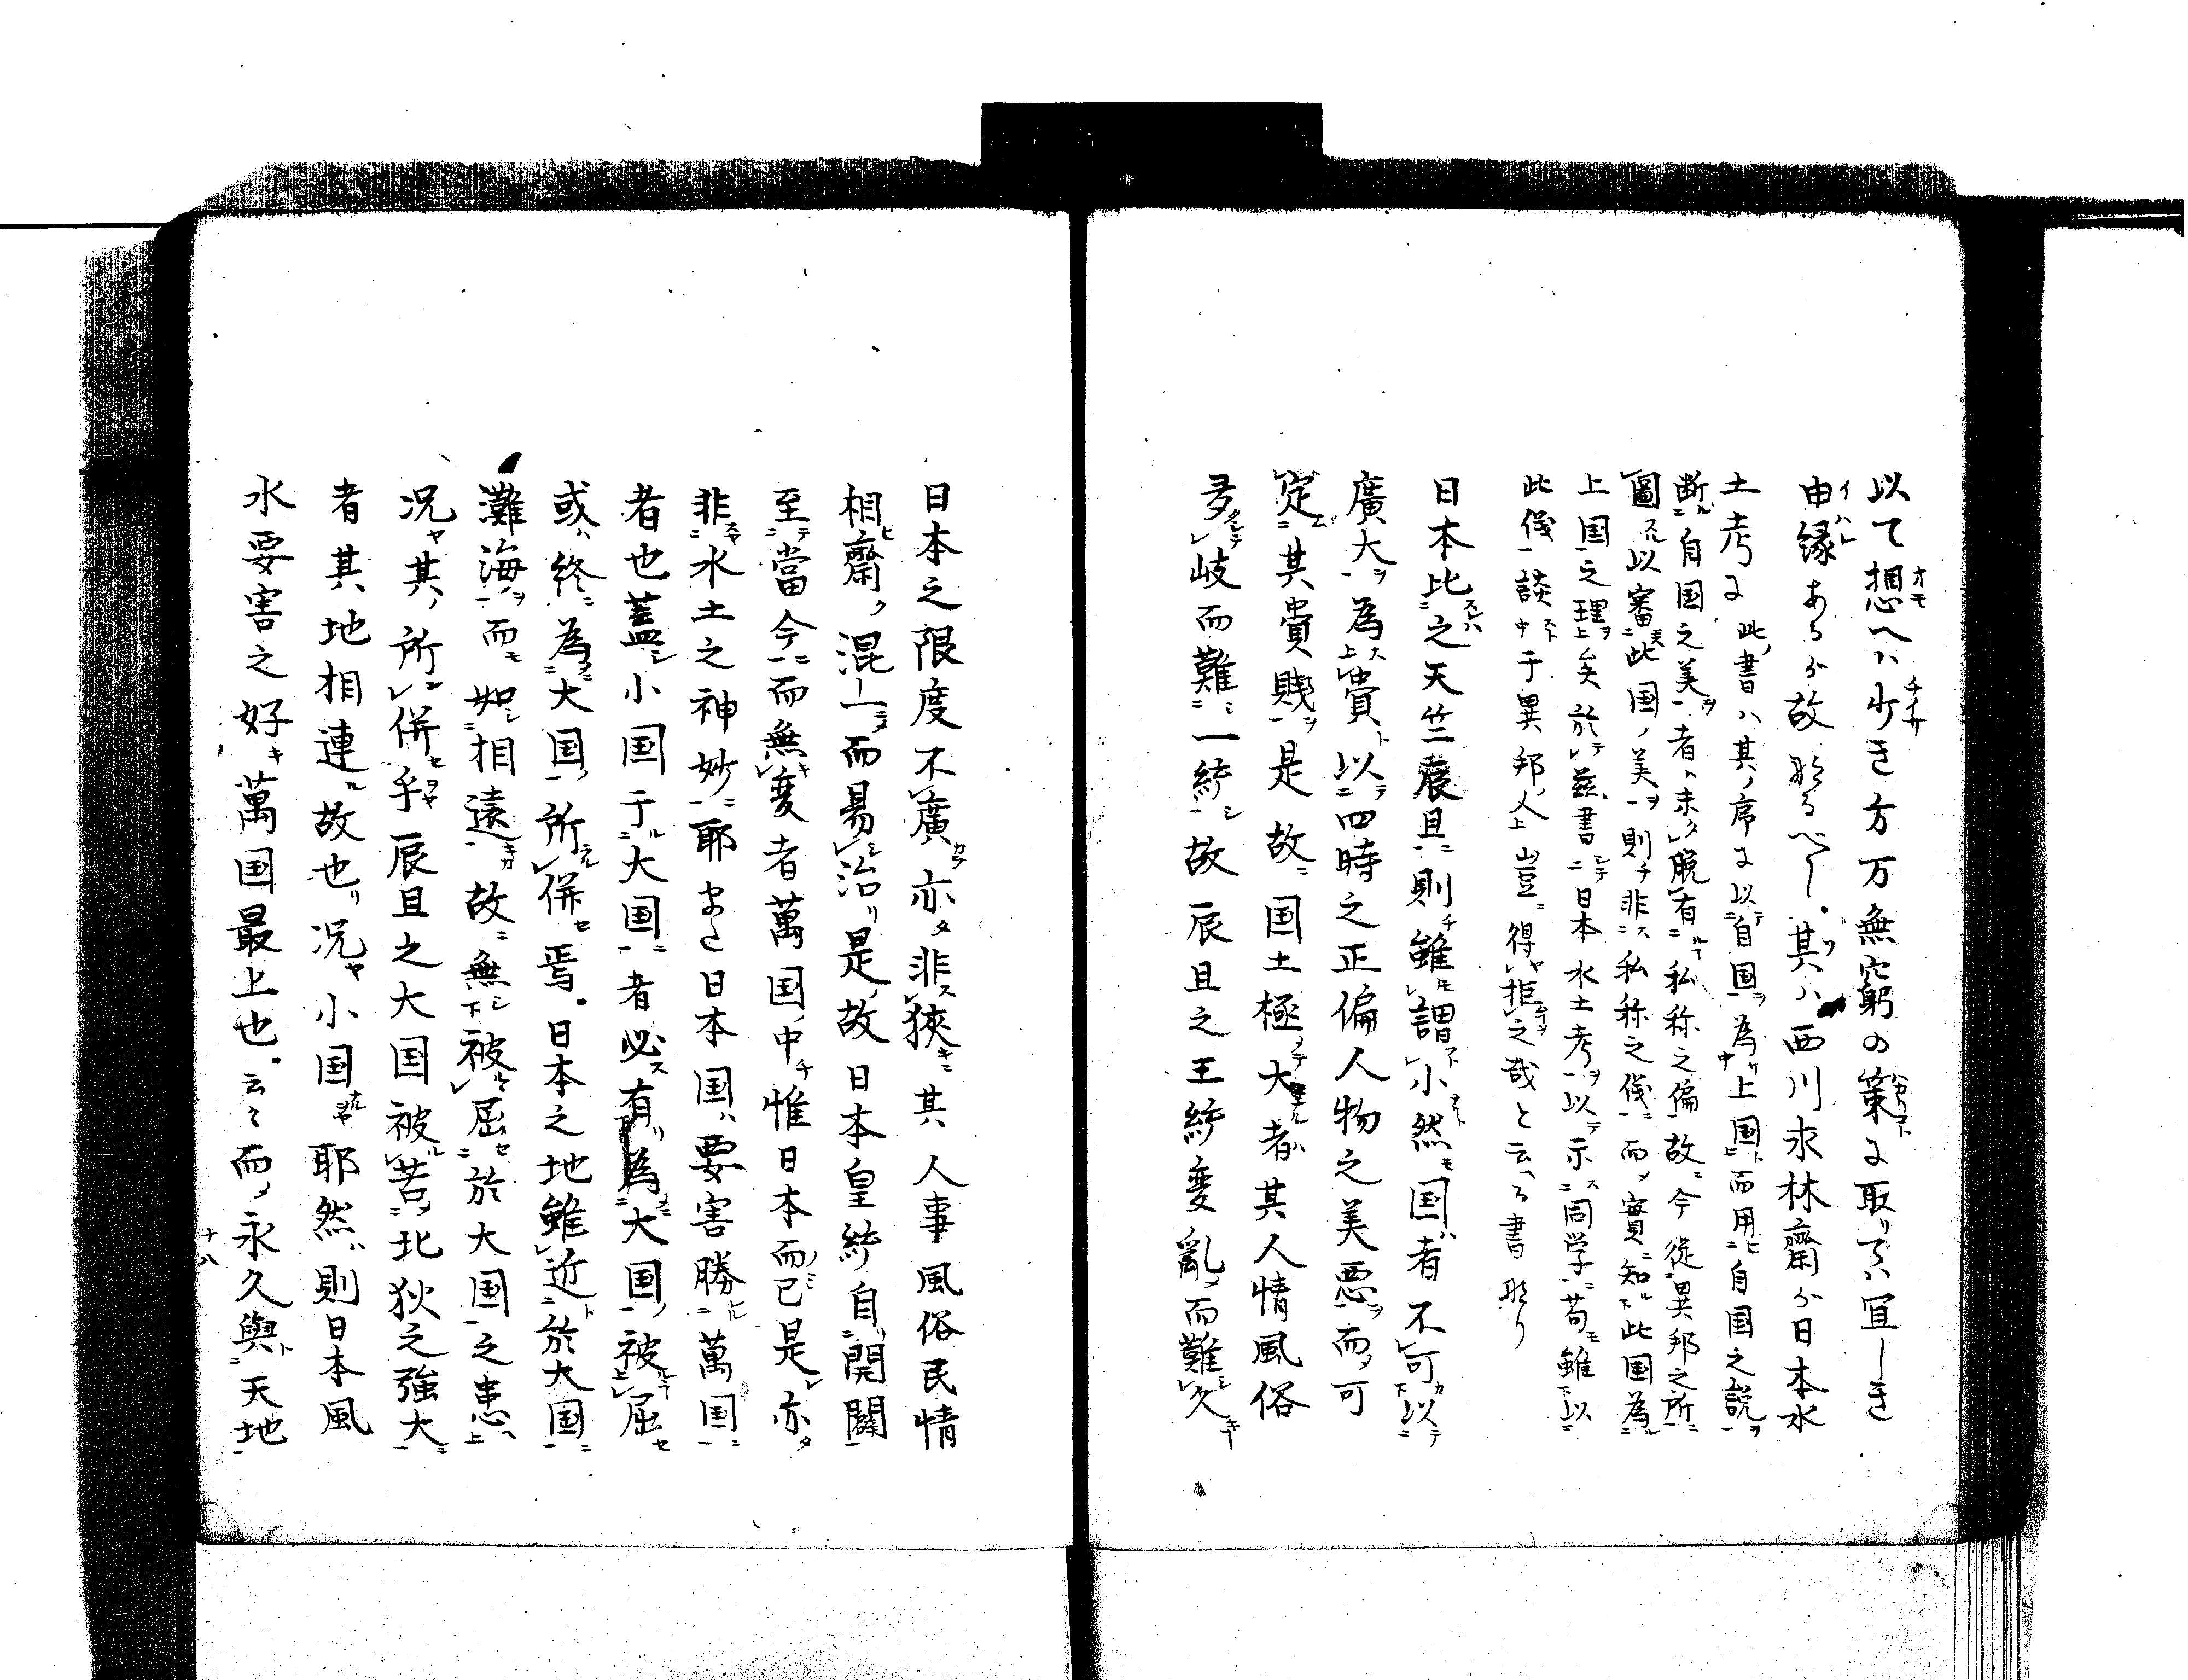 以て想へハ少き方万無窮の策に取りてハ宜しき
由縁あるが故なるべし。其ハ西川求林齋が日本水
土考に此書ハ其序に以自国為上国而用自国之説
断自国之美者未脱有私称之偏故今従異邦之所
圖以審此国美則非私称之儀而實知此国為
上国之理矣於茲書日本水土考以示同学苟雖以
此儀談于異邦人豈得拒之哉と云へる書なり
日本比之天竺震旦則雖謂小然国者不可以
廣大為貴以四時之正偏人物之美悪而可
定其貴賤是故国土極大者其人情風俗
多岐而難一統故辰旦之王統変亂而難久
日本之限度不廣亦非狭其人事風俗民情
相齋混一而易治是故日本皇統自開闢
至當今而無変者萬国中惟日本而已是亦
非水土之神妙耶また日本国ハ要害勝萬国
者也蓋小国于大国者必有為大国被屈
或終為大国所併焉。日本之地雖近於大国
灘海而如相遠故無被屈於大国之患
况其所併乎辰旦之大国被苦北狄之強大
者其地相連故也况小国耶然則日本風
水要害之好萬国最上也。云々而永久與天地
十八